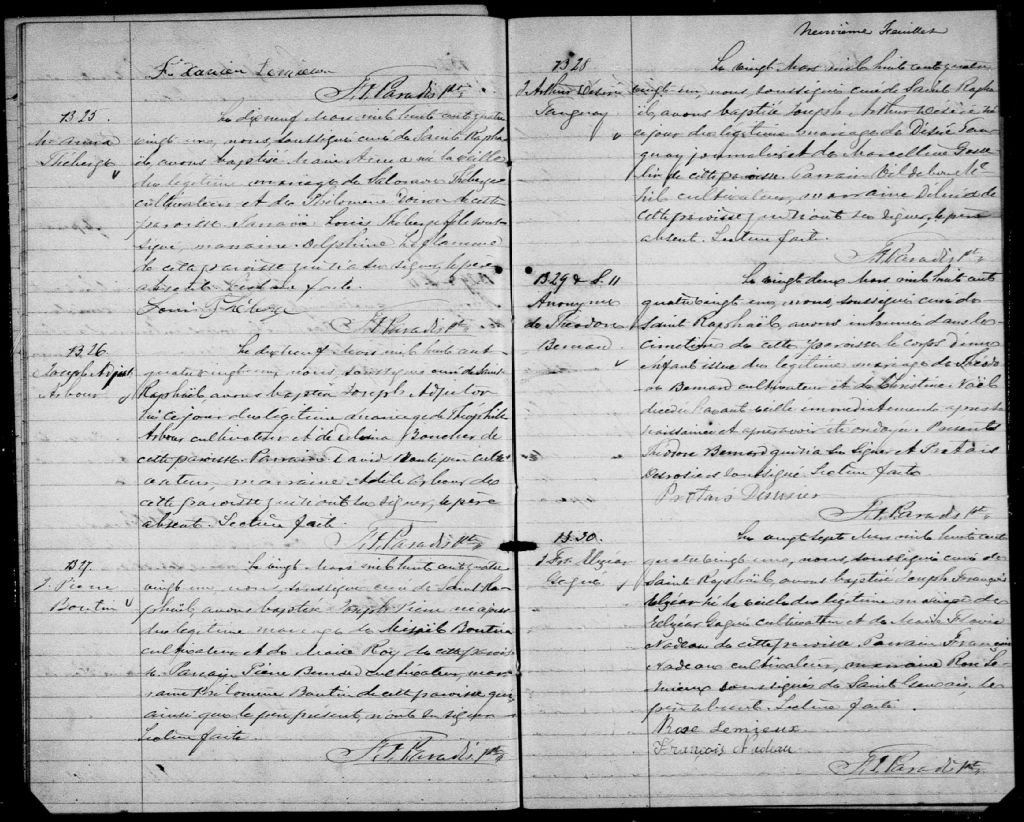 F. Xavier Lemieux
F. X. Paradis Ptr
B 25.
M. Anna
Théberge
Le dix neuf Mars mil huit cent quatre
vingt un, nous soussigné curé de Saint Rapha-
ël, avons baptisé Marie Anna née la veille
du légitime mariage de Salomon Théberge
cultivateur et de Philomène Dorion de cette
paroisse. Parrain Louis Théberge fils sous-
signé, marraine Delphine Laflamme
de cette paroisse qui n'a su signer, le père
absent. Lecture faite.
Louis Théberge
F. X. Paradis Ptr
B 26.
Joseph Adjut
Arbour
Le dix neuf Mars mil huit cent
quatre vingt un, nous soussigné curé de Saint
Raphaël, avons baptisé Joseph Adjutor
né ce jour du légitime mariage de Théophile
Arbour cultivateur et de Delvina Boucher de
cette paroisse. Parrain David culti
vateur, marraine Adèle Arbour de
cette paroisse qui n'ont su signer, le père
absent. Lecture faite.
F. X. Paradis Ptr
B 27.
J. Pierre
Boutin
Le vingt Mars mil huit cent quatre
vingt un, nous soussigné curé de Saint Ra-
phaël, avons baptisé Joseph Pierre né ce jour
du légitime mariage de Misaël Boutin
cultivateur et de Marie Roy de cette parois
se Parrain Pierre cultivateur, mar
raine Philomène Boutin de cette paroisse qui
ainsi que le père présent, n'ont su signer
Lecture faite.
F. X. Paradis Ptr
Neuvième Feuillet
B 28
J. Arthur Désiré
Tanguay
Le vingt Mars mil huit cent quatre
vingt un, nous soussigné curé de Saint Rapha
ël, avons baptisé Joseph Arthur Désiré né
ce jour du légitime mariage de Désiré Tan
guay journalier et de Marcelline Gosse
lin de cette paroisse. Parrain
cultivateur, marraine de
cette paroisse qui n'ont su signer, le père
absent. Lecture faite.
F. X. Paradis Ptr
B 29 & S. 11
Anonyme
de Théodore
Bernard
Le vingt deux Mars mil huit cent
quatre vingt un, nous soussigné curé de
Saint Raphaël, avons inhumé dans le
cimetière de cette paroisse le corps d'un
enfant issu du légitime mariage de Théodo
re Bernard cultivateur et de Christine Noël
décédé l'avant veille immédiatement après sa
naissance et après avoir été ondoyé. Présents
Théodore Bernard qui n'a su signer et Protais
Desrosiers soussigné. Lecture faite
Protais Desrosier
F. X. Paradis Ptr
B 30.
J. Frs. Elzéar
Gagné
Le vingt sept Mars mil huit cent
quatre vingt un, nous soussigné curé de
Saint Raphaël avons baptisé Joseph François
Elzéar né la veille du légitime mariage de
Elzéar Gagné cultivateur et de Marie Flavie
Nadeau de cette paroisse Parrain François
Nadeau cultivateur, marraine Rose Le
mieux soussignés de Saint Gervais, le
père absent. Lecture faite.
Rose Lemieux
François Nadeau
F. X. Paradis Ptr